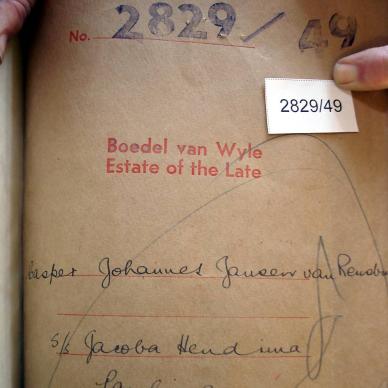 No. 2829/49
2829/49
Boedel van Wyle
Estate of the Late
Casper Johannes Jansen van Rensbu
s/s Jacoba Hendrina